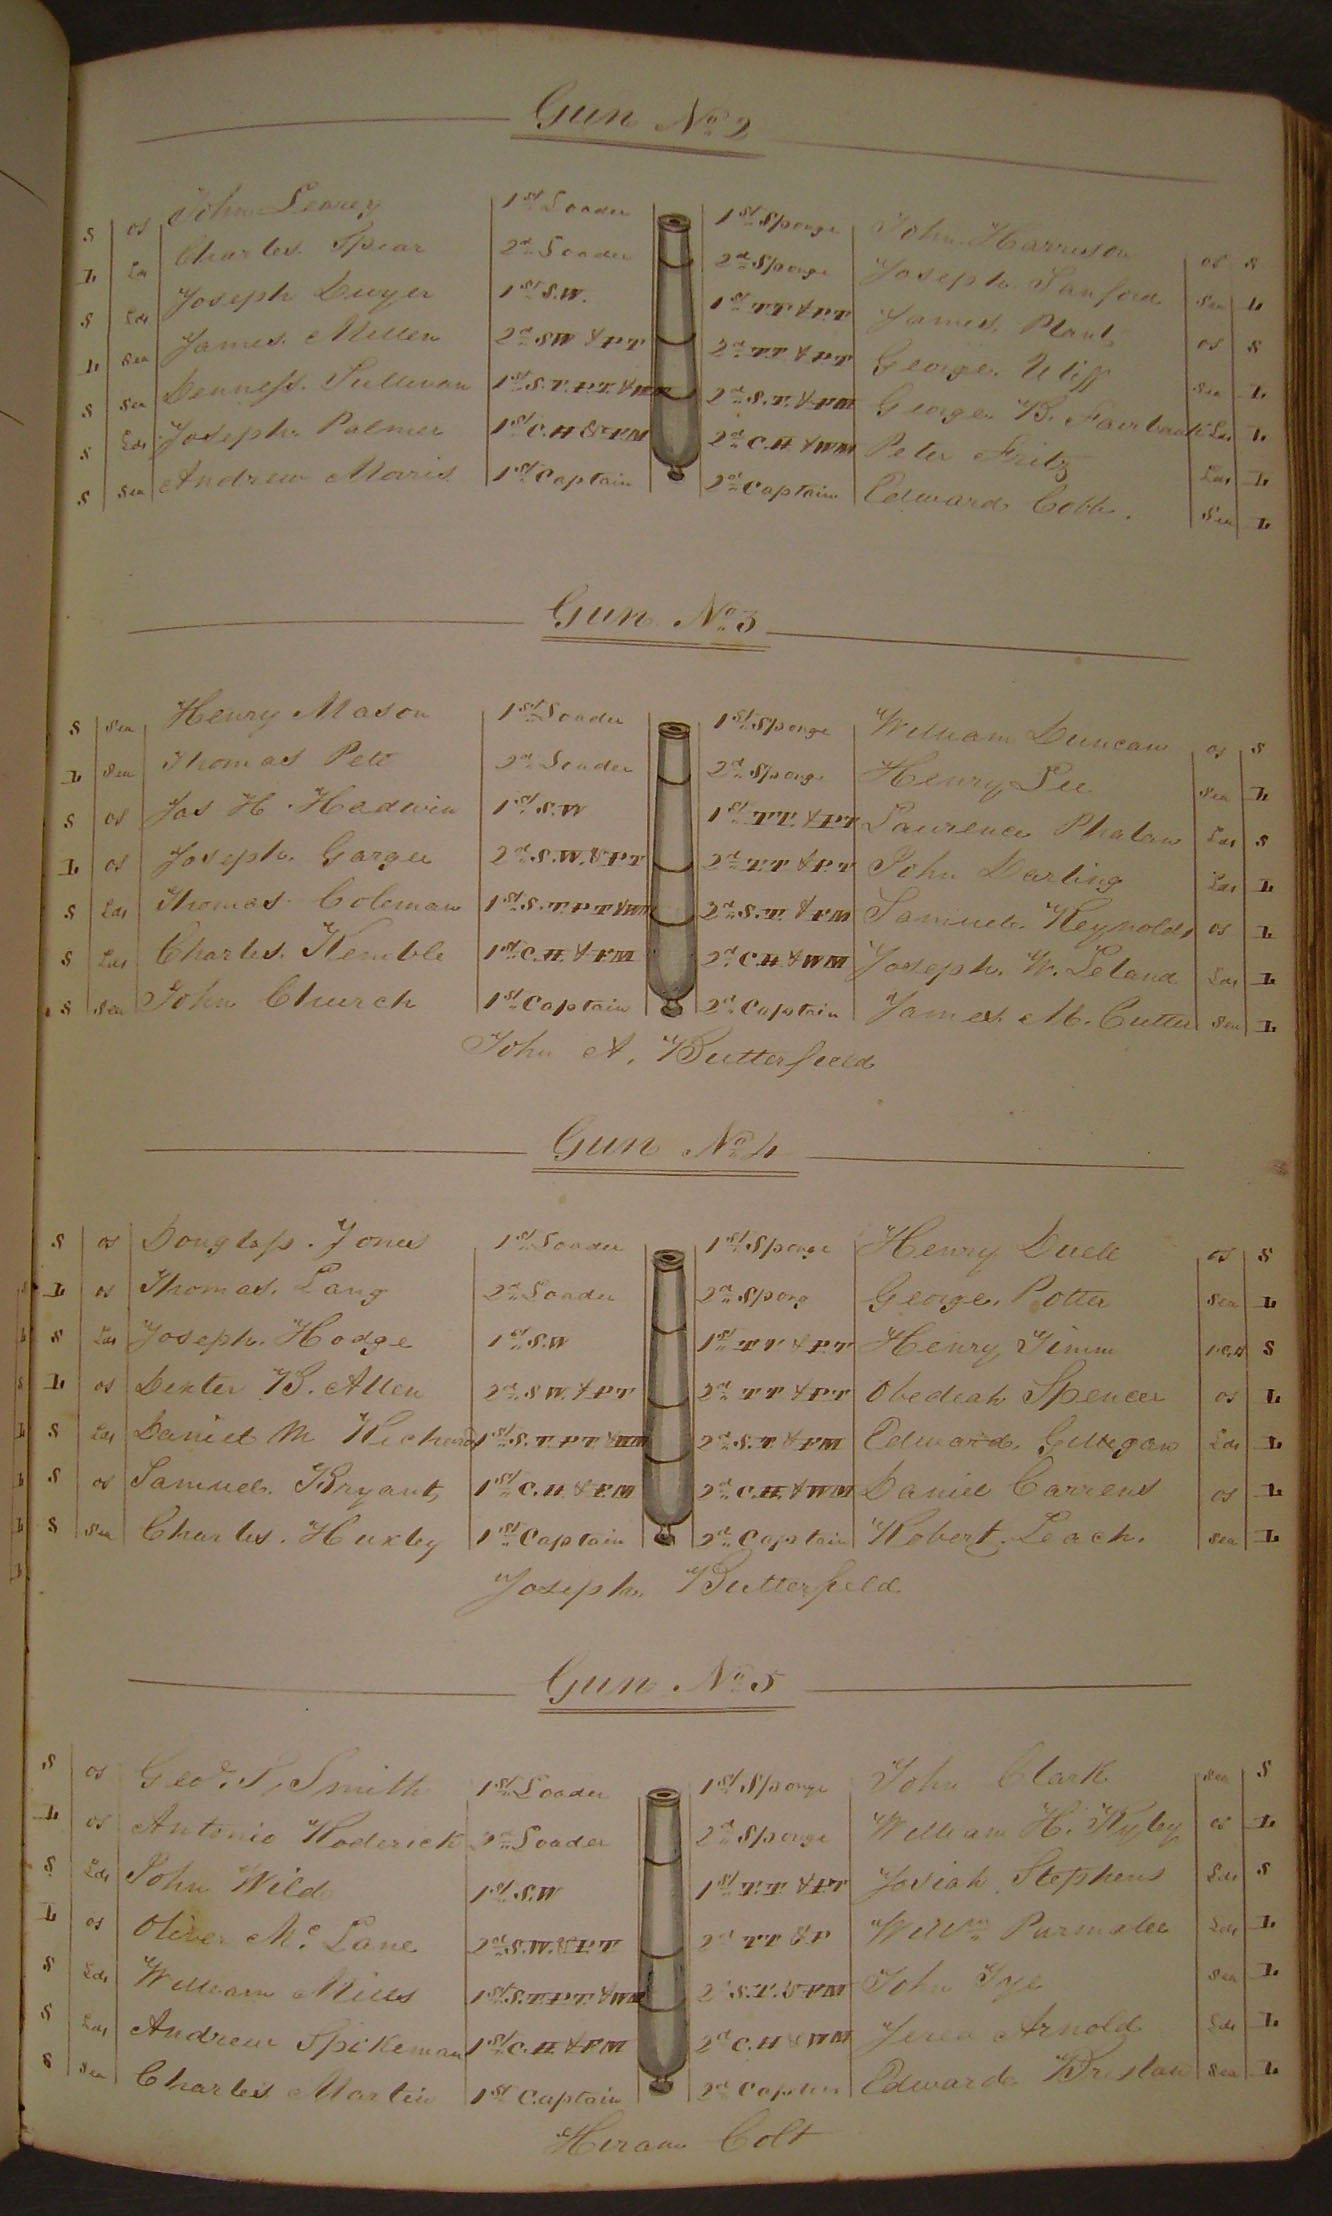 Gun No 2
S os John Leavey 1st Loader 1st Sponge John Harrison os S
L Lds Charles Spear 2d Loader 2d Sponge Joseph Sanford Sea L
S Lds Joseph Dwyer 1st S.W. 1st T.T & P.T James Plant os S
L Sea James Millen 2d SW & P.T 2d T.T & P.T George Uliff Sea L
S Sea Denness Sullivan 1st S.T. P.T. & WM 2d S.T. & F.M George B. Fairbank Lds L
S Lds Joseph Palmer 1st C.H & F.M 2d C.H & WM Peter Fritz Lds L
S Sea Andrew Maris 1st Captain 2d Captain Edward Cobb. Sea L
Gun No 3
S Sea Henry Mason 1st Loader 1st Sponge William Duncan os S
L Sea Thomas Pete 2d Loader 2d Sponge Henry Lee Sea L
S os Jas H Hadwin 1st S.W 1st T.T. & P.T Laurence Phalan Lds S
L os Joseph Gargee 2d S.W. & P.T 2d T.T & P.T John Darling Lds L
S Lds Thomas Coleman 1st S.T. P.T & WM 2d S.T. & F.M Samuel Reynolds os L
S Lds Charles Kemble 1st C.H. & F.M 2d C.H & WM Joseph W. Leland Lds L
S Sea John Church 1st Captain 2d Captain James M. Cutter Sea L
John A. Butterfield
Gun No 4
S os Douglass Jones 1st Loader 1st Sponge Henry Duell os S
L os Thomas Lang 2d Loader 2d Spong George Potter Sea L
S Lds Joseph Hodge 1st S.W 1st T.T & P.T Henry Timm S
L os Dexter B. Allen 2d S.W. & P.T 2d T.T & P.T Obediah Spencer os L
S Lds Daniel M Richards 1st S.T. P.T & WM 2d S.T & F.M Edward Gilligan Lds L
S os Samuel Bryant 1st C.H. & F.M 2d C.H. & WM Daniel Carrens os L
S Sea Charles Huxley 1st Captain 2d Captain Robert Leach. Sea L
Joseph Butterfield
Gun No 5
S os Geo. S. Smith 1st Loader 1st Sponge John Clark Sea S
L os Antonio Roderick 2d Loader 2d Sponge William H. Ryley os L
S Lds John Wild 1st S.W 1st T.T. & P.T Josiah Stephens Lds S
L os Oliver Mc Lane 2d S.W. & P.T 2d T.T & P Willm Parmalee Lds L
S Lds William Mills 1st S.T. P.T. & WM 2 S.T. & F.M John Tye Sea L
S Lds Andrew Spikeman 1st C.H. & F.M 2d C.H & WM Jerea Arnold Lds L
S Sea Charles Martin 1st Captain 2d Captain Edward Bristan Sea L
Hiram Colt